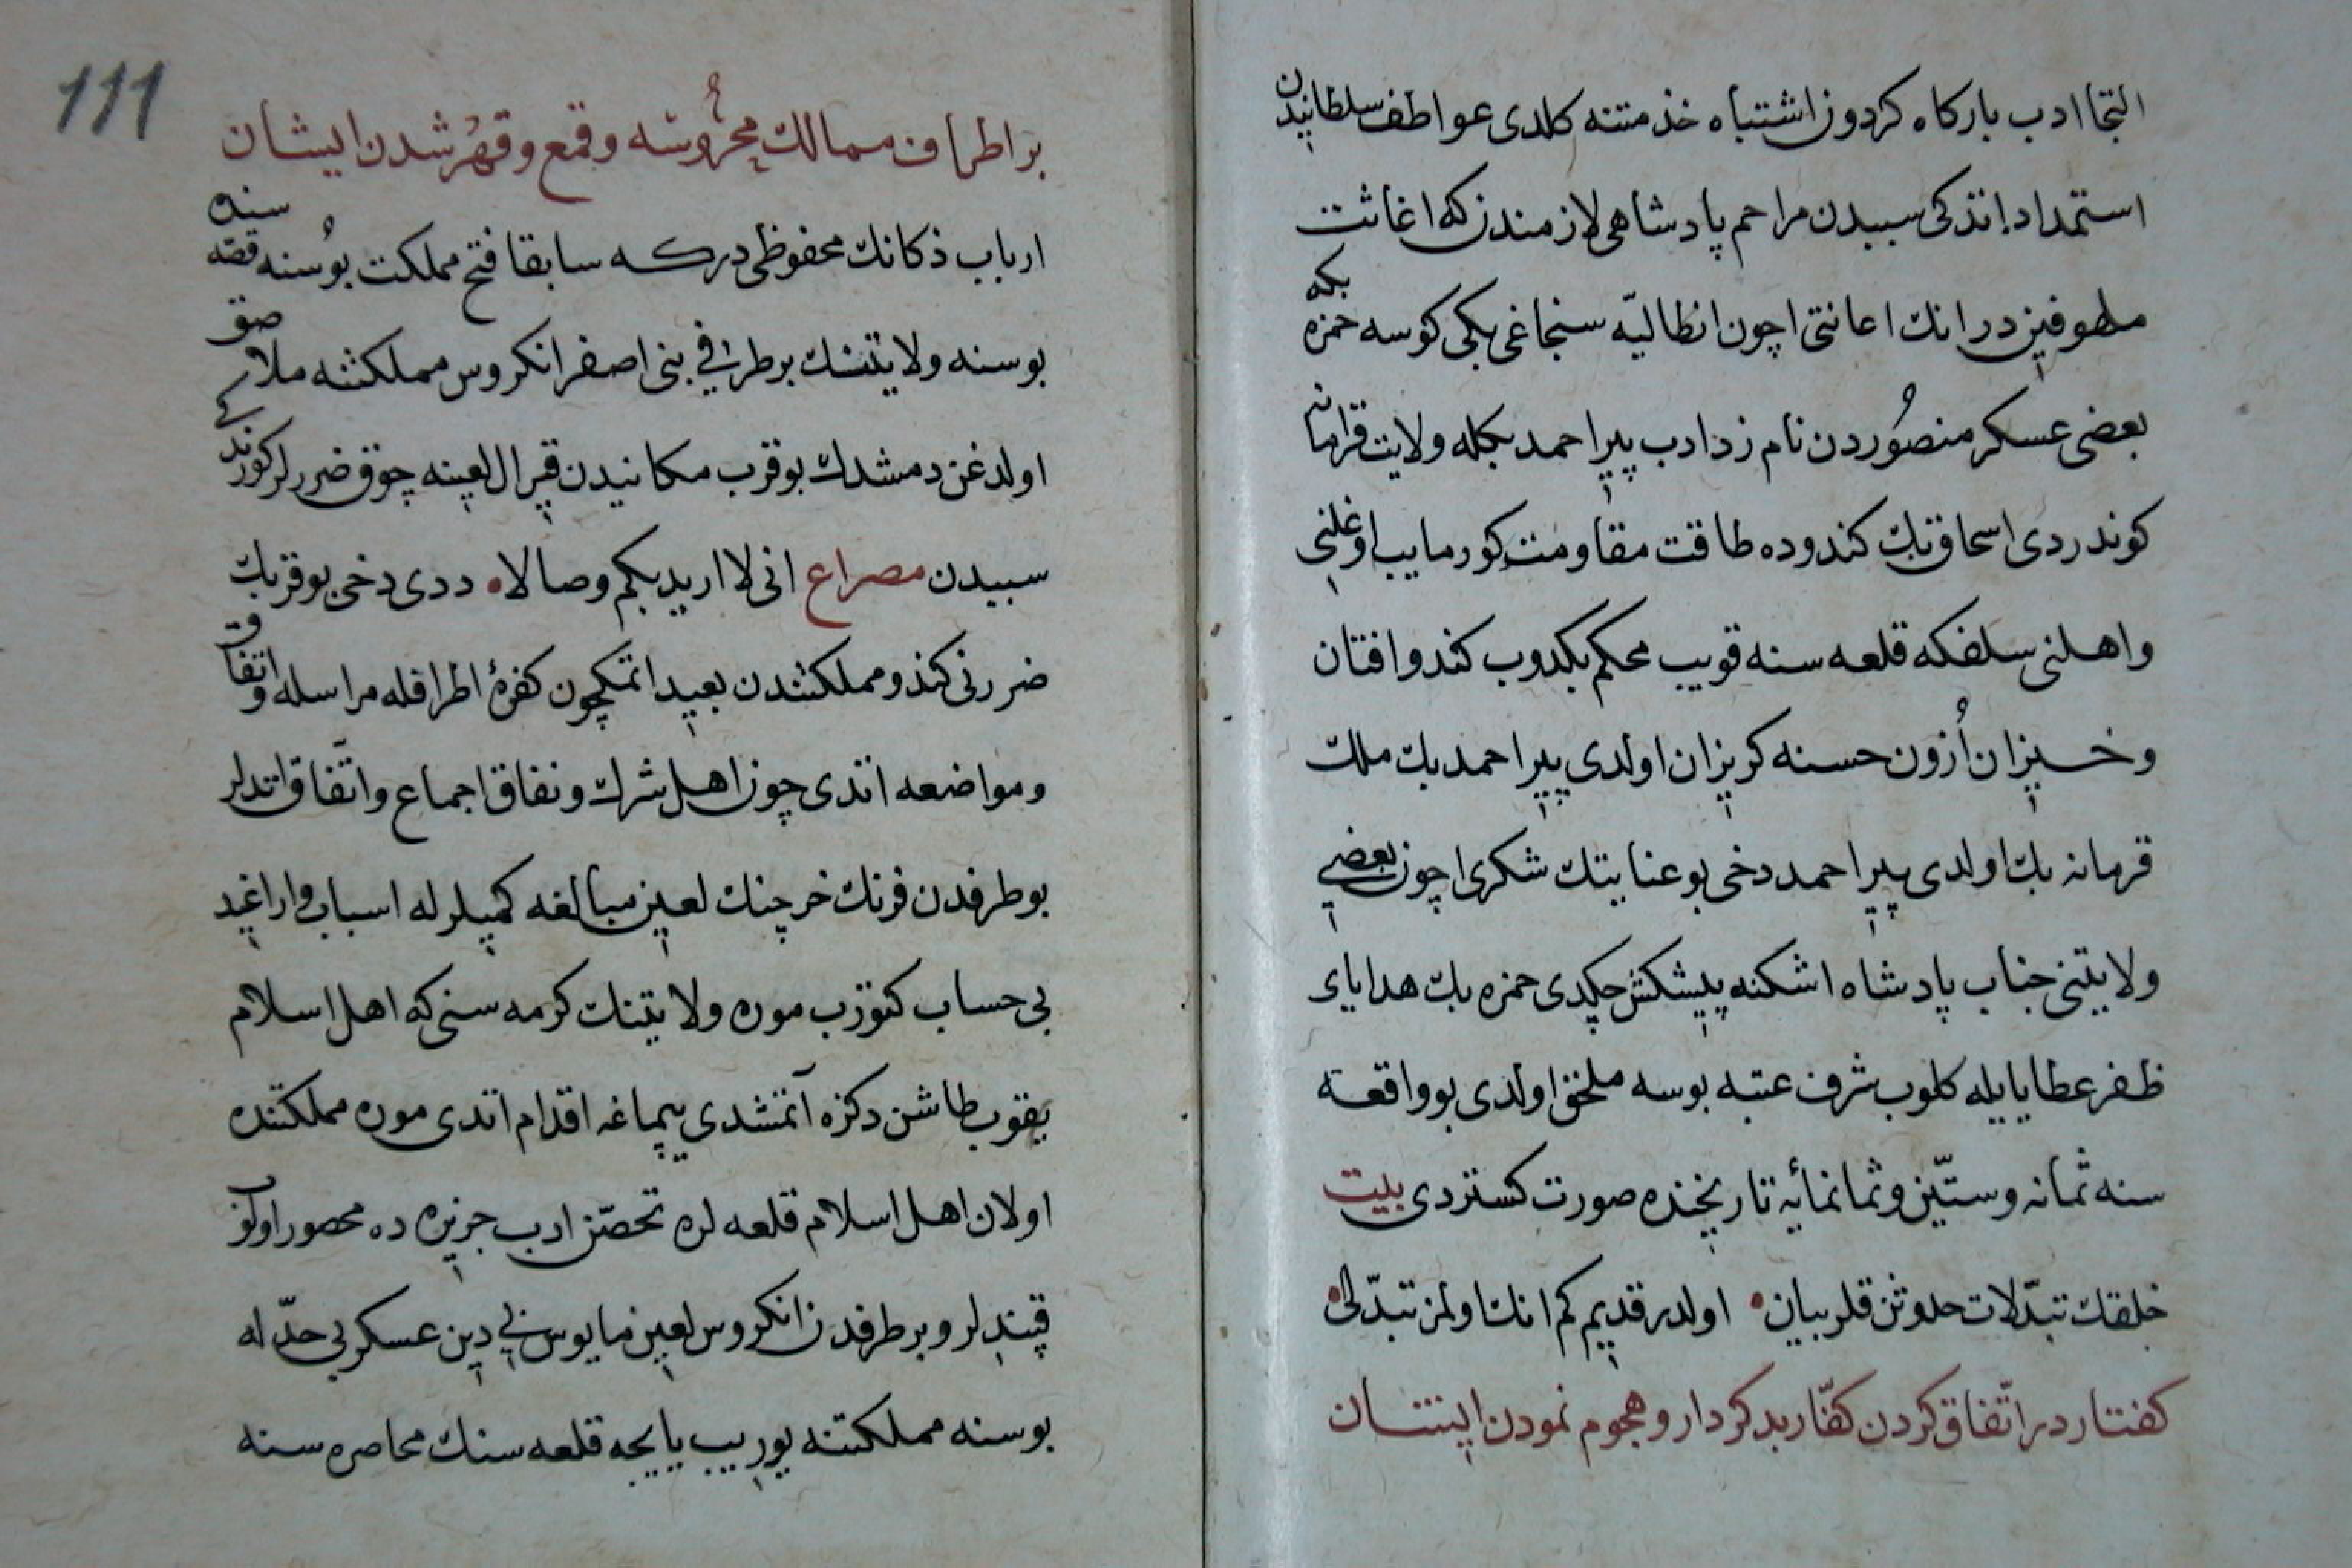 التجا ادب باركاه كردون اشتباه خذمتنه كلدى عواطف سلطانيدن
استمداد اتدكى سببدن مراحم پادشاهى لازمندن كه اغاثت
ملهوفين در انك اعانتى اچون انطاليّه سنجاغى بكى كوسه حمزه بكه
بعضى عسكر منصُوردن نام زد ادب پير احمد بكله ولايت قرامانه
كوندردى اسحاق بك كندوده طاقت مقاومت كورمايب اوغلنى
واهلنى سلفكه قلعه سنه قويب محكم بكدوب كندو افتان
وخيزان اُزون حسنه كريزان اولدى پير احمد بك ملك
قرمانه بك اولدى پير احمد دخى بو عنايتك شكرى اچون بعضى
ولايتنى جناب پادشاه اشكنه پيشكش چكدى حمزه بك هداياى
ظفر عطايا يله كلوب شرف عتبه بوسه ملحق اولدى بو واقعه
سنه ثمانه وستّين وثمانمائه تاريخنده صورت كستردى بيت
خلقك تبدّلات حدوثن قلر بيان اولدر قديم كم انك اولمز تبدّلى
كفتار در اتّفاق كردن كفّار بد كردار وهجوم نمودن ايشان
111
بر اطراف ممالك محرُوسَه وقمع وقهر شدن ايشان
ارباب ذكانك محفوظى دركه سابقا فتح مملكت بوُسنه قصّه سنده
بوسنه ولايتنك بر طرفى بنى اصفر انكروس مملكتنه ملاصق
اولدغن دمشدك بو قرب مكانيدن قيرال لعينه چوق ضررلر كورندكى
سببدن مصراع انى لا اريد بكم وصالا ددى دخى بو قربك
ضررنى كندو مملكتندن بعيد اتمكچون كفرۀ اطرافله مراسله واتفاق
ومواضعه اتدى چون اهل شرك ونفاق اجماع واتّفاق اتديلر
بو طرفدن فرنك خرچنك لعين مبالغه كميلرله اسباب واراغيد
بى حساب كتورب موره ولايتنك كرمه سنى كه اهل اسلام
يقوب طاشن دكزه آتمشدى يپماغه اقدام اتدى موره مملكتنده
اولان اهل اسلام قلعه لره تحصّن ادب جزيره ده محصور اولوب
قپندلر وبر طرفدن انكروس لعين مايوس بى دين عسكر بى حدّله
بوسنه مملكتنه يوريب يايچه قلعه سنك محاصره سنه